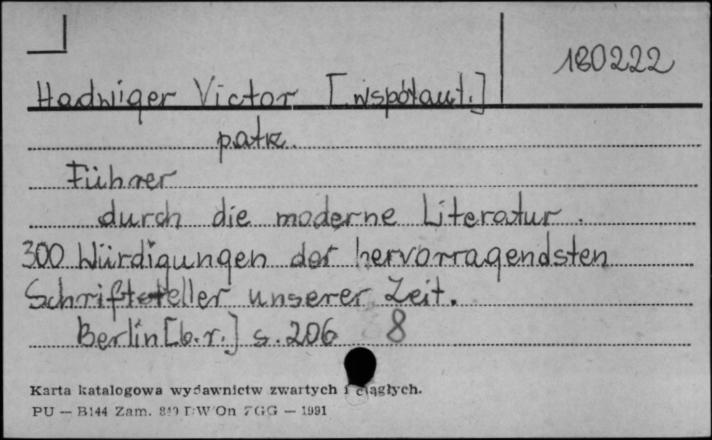 180222
Hadwiger Victor [współaut.]
patrz
Führer
durch die moderne Literatur.
300 Würdigungen der hervorragendsten
Schriftsteller unserer Zeit.
Berlin [b.r.] s. 206 8
Karta katalogowa wydawnictw zwartych i ciągłych.
PU — B144 Zam. DW On ZGG — 1991